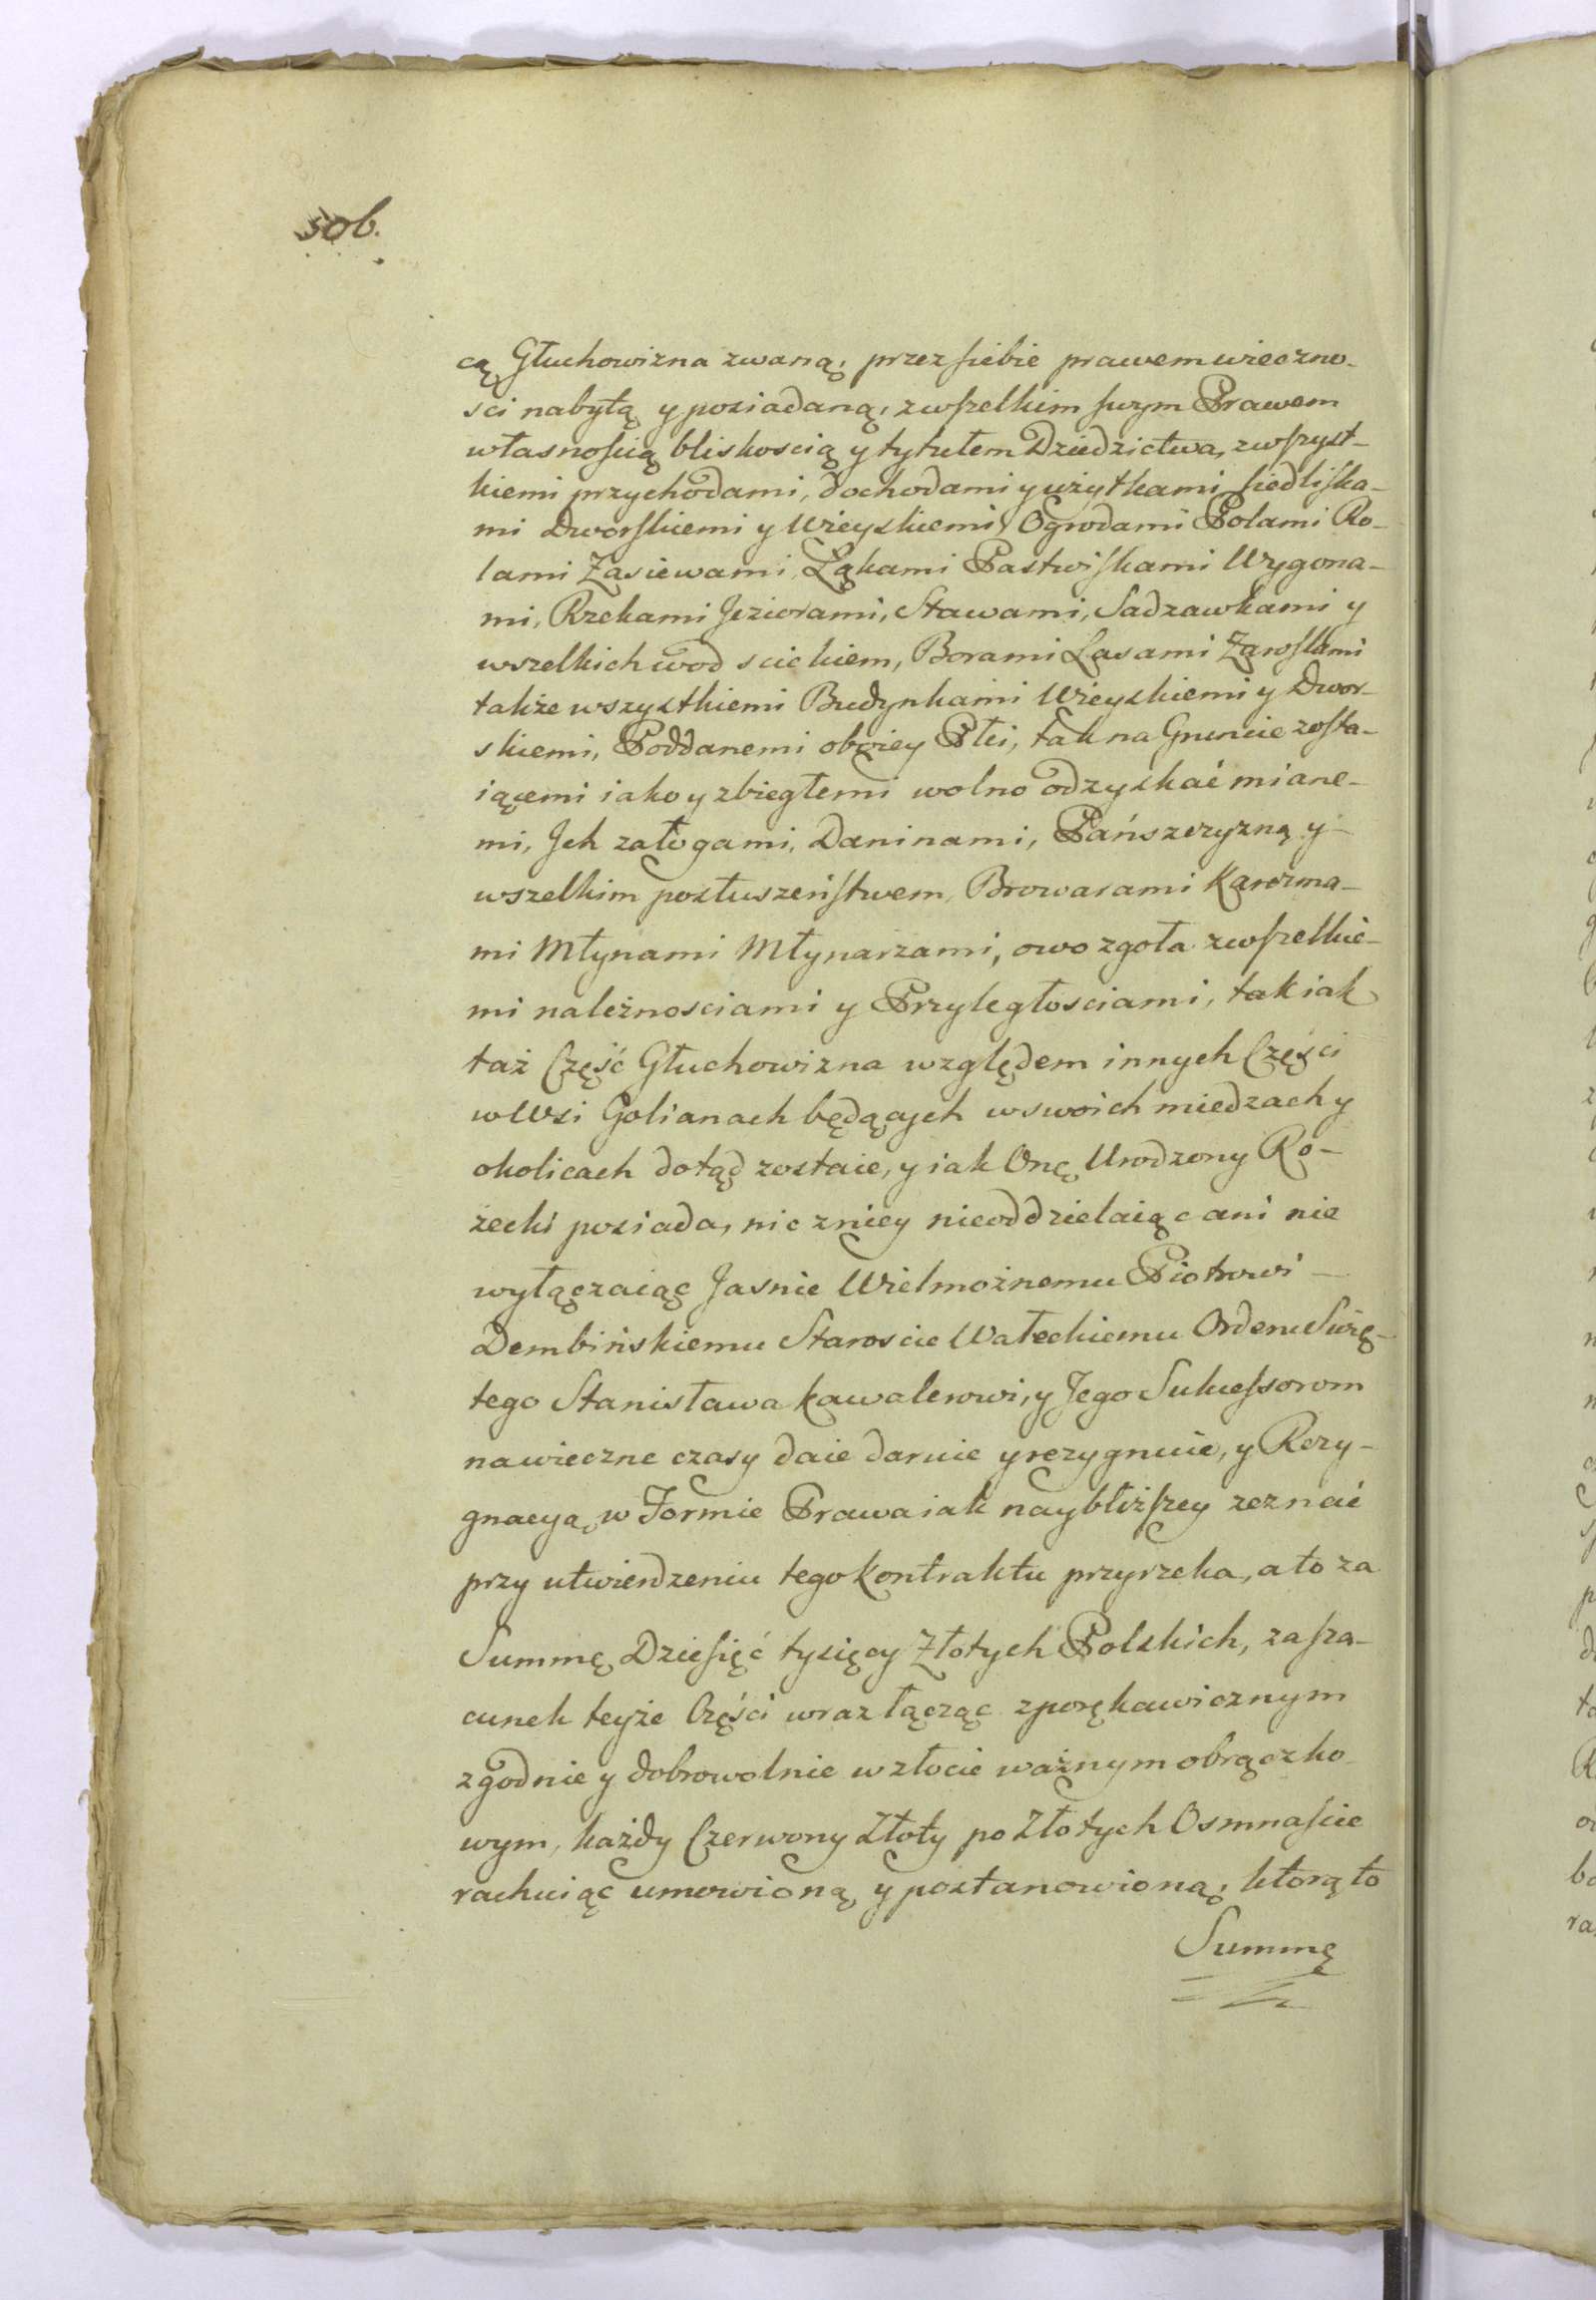 306.
cą Głuchowizna zwaną, przez siebie prawem wieczno-
sci nabytą y posiadaną, zwszelkim swym Prawem
własnoscią bliskoscią y tytułem Dziedzictwa, zwszyst-
kiemi przychodami, dochodami y użytkami siedliska-
mi Dworskiemi y Wieyskiemi, Ogrodami Polami Ro-
lami Zasiewami, Łąkami Pastwiskami Wygona-
mi, Rzekami Jeziorami, Stawami, Sadzawkami y
wszelkich wod sciekiem, Borami Lasami Zaroslami
także wszystkiemi Budynkami Wieyskiemi y Dwor-
skiemi, Poddanemi oboiey Płci, tak na Gruncie zosta-
iącemi iako y zbiegłemi wolno odzyskać miane-
mi, Jch załogami, Daninami, Pańszczyzną y
wszelkim posłuszeństwem, Browarami Karczma-
mi Młynami Młynarzami, owo zgoła zwszelkie-
mi należnosciami y Przyległosciami, tak iak
taż Część Głuchowizna względem innych Części
w Wsi Golianach będących wswoich miedzach y
okolicach dotąd zostaie, y iak Onę Urodzony Ro-
żecki posiada, nic zniey nieoddzielaiąc ani nie
wyłączaiąc Jasnie Wielmożnemu Piotrowi
Dembińskiemu Staroscie Wałeckiemu Orderu Swię-
tego Stanisława Kawalerowi, y Jego Sukcessorom
nawieczne czasy daie daruie y rezygnuie, y Rezy-
gnacyą w Formie Prawa iak naybliższey zeznać
przy utwierdzeniu tego Kontraktu przyrzeka, a to za
Summę Dziesięć tysięcy Złotych Polskich, zasza-
cunek teyże Części wraz łącząc zporękawicznym
zgodnie y dobrowolnie wzłocie ważnym obrączko-
wym, każdy Czerwony Złoty po Złotych Osmnascie
rachuiąc umowioną y postanowioną, ktorą to
Summę